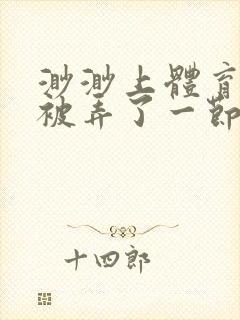 渺渺上體育
被弄了一節
十四郎